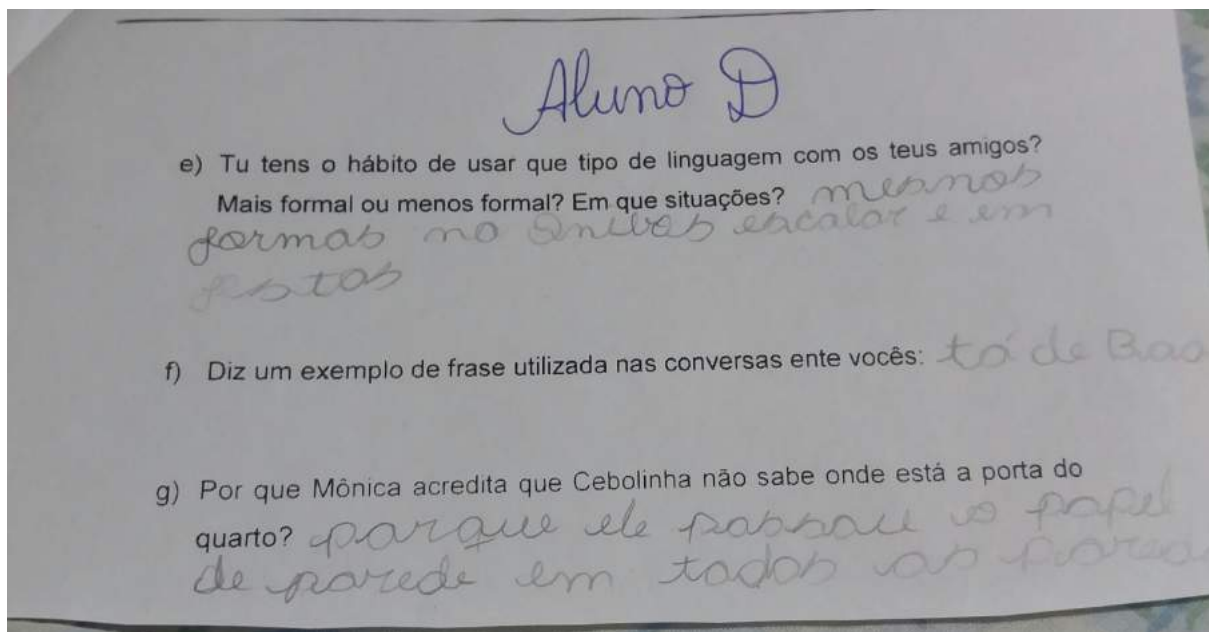 Aluno D
e) Tu tens o hábito de usar que tipo de linguagem com os teus amigos?
Mais formal ou menos formal? Em que situações? mesnos
formas no onibos escalar e em
festas
f) Diz um exemplo de frase utilizada nas conversas ente vocês: tá de Boa
g) Por que Mônica acredita que Cebolinha não sabe onde está a porta do
quarto? porque ele passou o papel
de parede em todas as